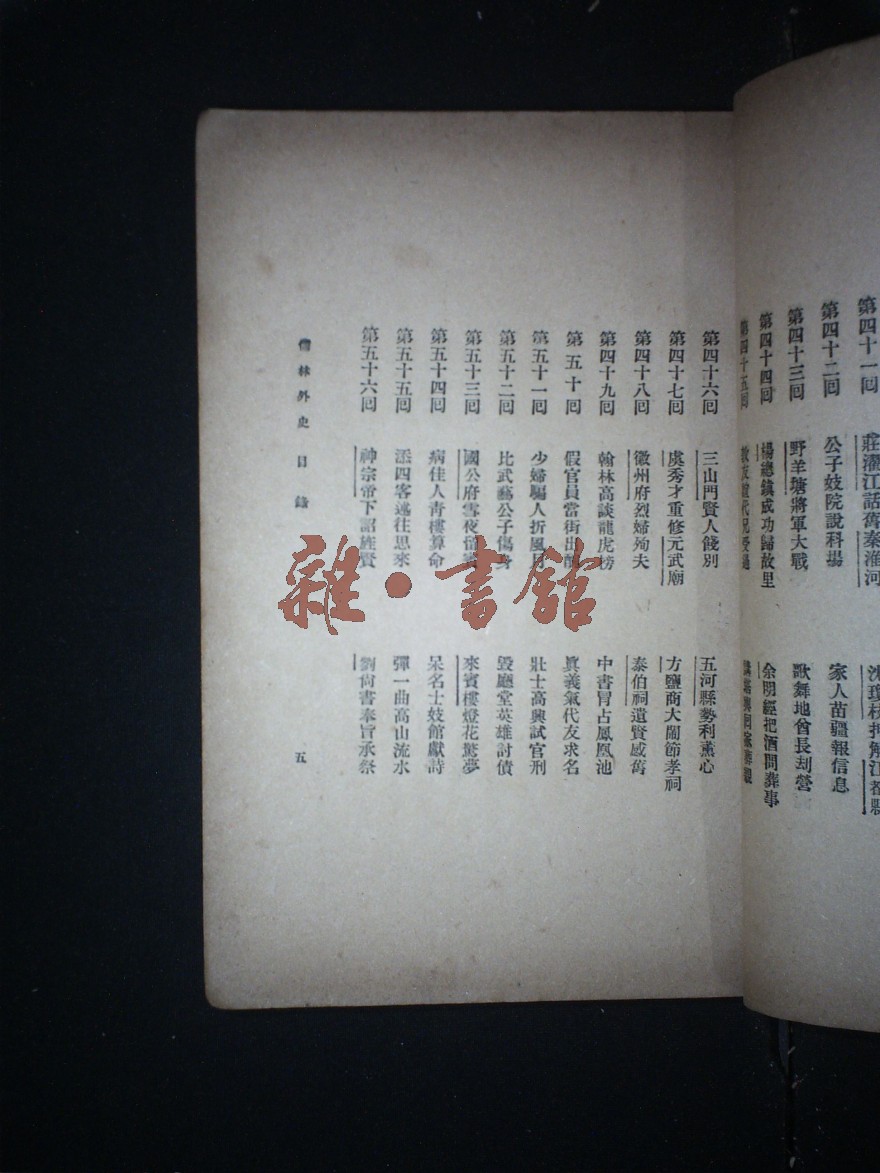 第四十一回 莊濯江話舊秦淮河 沈瓊枝押解江都縣
第四十二回 公子妓院說科場 家人苗疆報信息
第四十三回 野羊塘將軍大戰 歌舞地酋長刦營
第四十四回 楊總鎮成功歸故里 余明經把酒問葬事
第四十五回
第四十六回 三山門賢人餞別 五河縣勢利薰心
第四十七回 虞秀才重修元武廟 方鹽商大鬧節孝祠
第四十八回 徽州府烈婦殉夫 泰伯祠遺賢感舊
第四十九回 翰林高談龍虎榜 中書冒占鳳凰池
第五十回 假官員當街出 眞義氣代友求名
第五十一回 少婦騙人折風月 壯士高興試官刑
第五十二回 比武藝公子傷身 毀廳堂英雄討債
第五十三回 國公府雪夜留 來賓樓燈花驚夢
第五十四回 病佳人青樓算命 呆名士妓館獻詩
第五十五回 添四客述往思來 彈一曲高山流水
第五十六回 神宗帝下詔旌賢 劉尚書奉旨承祭
儒林外史 目錄 五
雜·書館